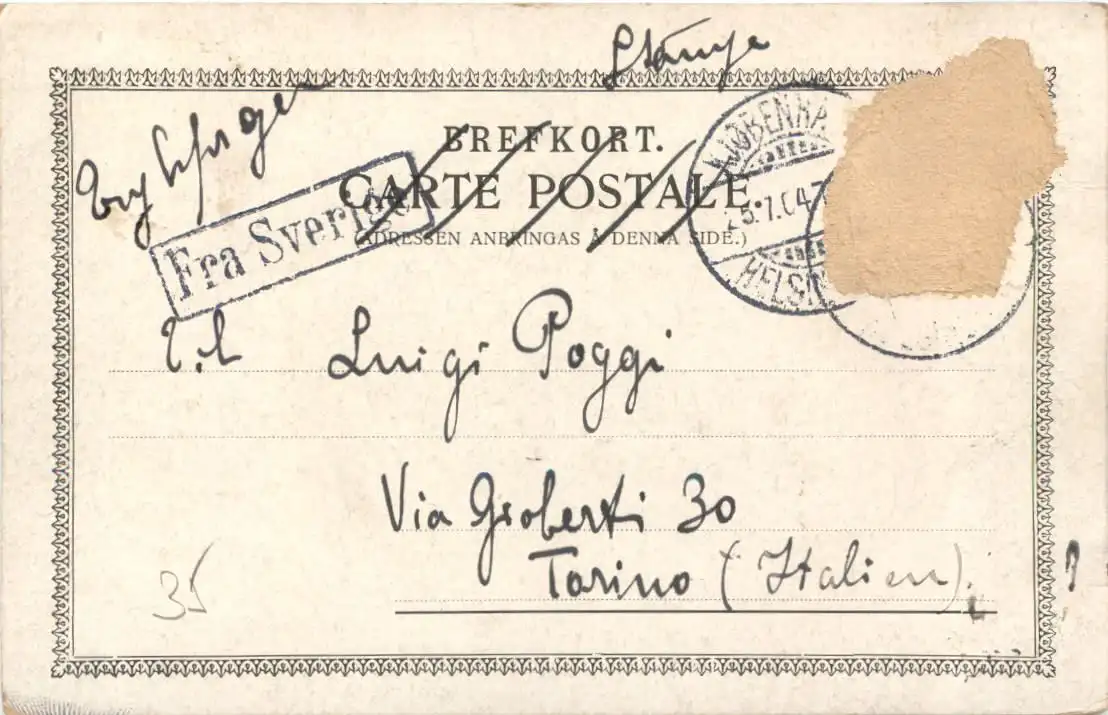 BREFKORT.
CARTE POSTALE
(ADRESSEN ANBRINGAS Å DENNA SIDE.)
Fra Sverige
KJØBENHA
25.7.04.7
HELSI
Luigi Poggi
Via Gioberti 30
Torino (Italien).
35